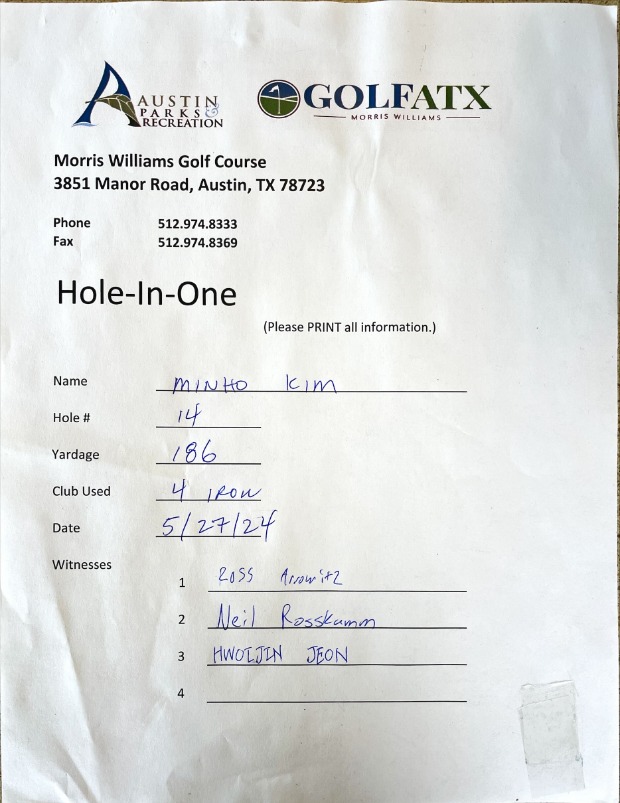 AUSTIN
PARKS &
RECREATION
GOLFATX
MORRIS WILLIAMS
Morris Williams Golf Course
3851 Manor Road, Austin, TX 78723
Phone 512.974.8333
Fax 512.974.8369
Hole-In-One
(Please PRINT all information.)
Name MINHO KIM
Hole # 14
Yardage 186
Club Used 4 IRON
Date 5/27/24
Witnesses
1 ROSS Arrowitz
2 Neil Rosskamm
3 HWOIJIN JEON
4